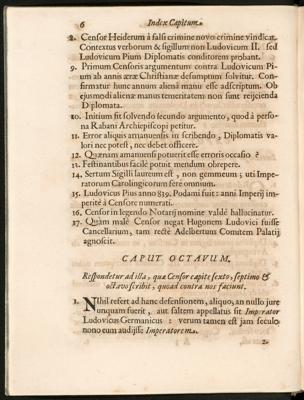 6 Index Capitum.
8. Censor Heiderum à falsi crimine novo crimine vindicat.
Contextus verborum & sigillum non Ludovicum II. sed
Ludovicum Pium Diplomatis conditorem probant.
9. Primum Censoris argumentum contra Ludovicum Pi-
um ab annis æræ Christianæ desumptum solvitur. Con-
firmatur hunc annum alienâ manu esse adscriptum. Ob
ejusmodi alienæ manus temeritatem non sunt rejcienda
Diplomata.
10. Initium fit solvendo secundo argumento, quod à perso-
na Rabani Archiepiscopi petitur.
11. Error aliquis amanuensis in scribendo, Diplomatis va-
lori nec potest, nec debet officere.
12. Quænam amanuensis potuerit esse erroris occasio ?
13. Festinantibus facilè potuit mendum obrepere.
14. Sertum Sigilli laureum est, non gemmeum; uti Impe-
ratorum Carolingicorum fere omnium.
15. Ludovicus Pius anno 839. Podami fuit: anni Imperij im-
peritè à Censore numerati.
16. Censor in legendo Notarij nomine valdè hallucinatur.
17. Quàm malè Censor negat Hugonem Ludovici fuisse
Cancellarium, tam rectè Adelbertum Comitem Palatij
agnoscit.
CAPUT OCTAVUM.
Respondetur ad illa, quæ Censor capite sexto, septimo &
octavo scribit, quoad contra nos faciunt.
1. Nihil refert ad hanc defensionem, aliquo, an nullo jure
unquam fuerit, aut saltem appellatus sit Imperator
Ludovicus Germanicus : verum tamen est jam seculo
nono eum audijsse Imperatorem.
2.